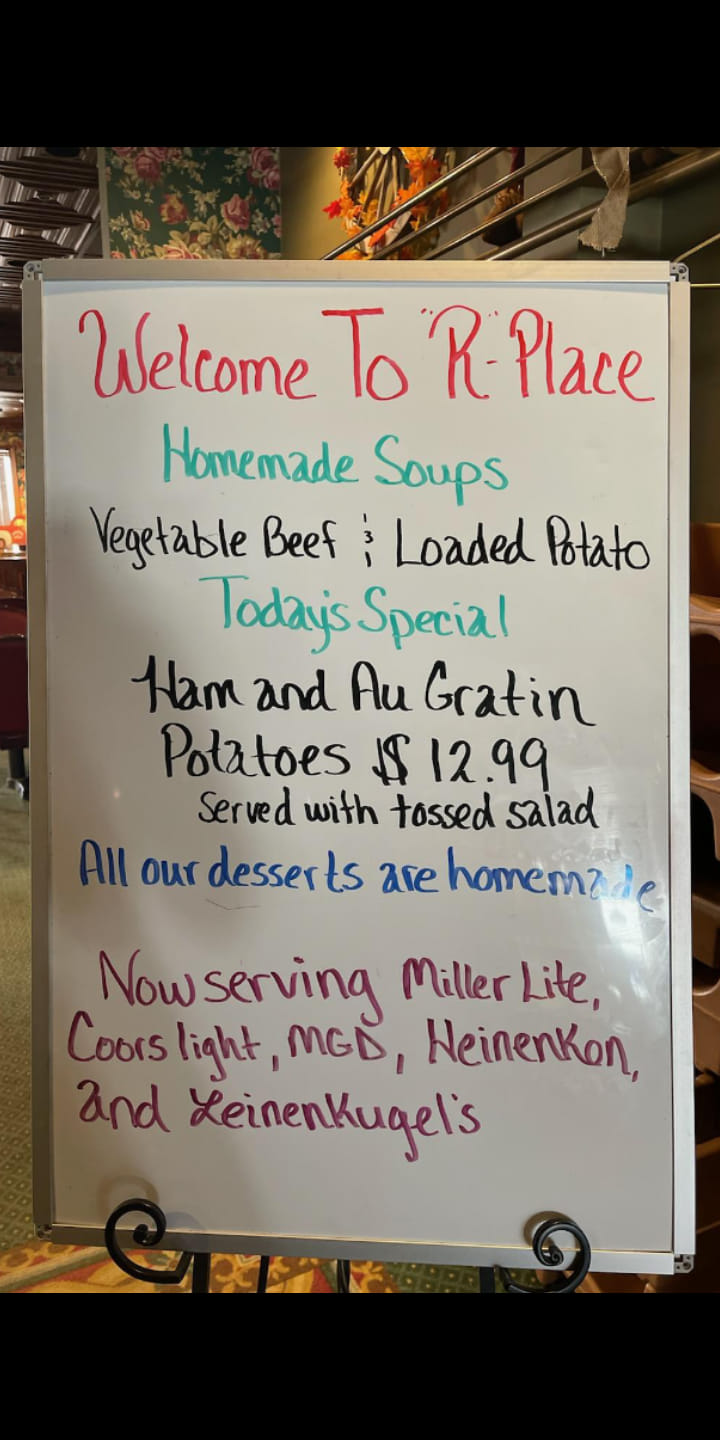 Welcome To "R" Place
Homemade Soups
Vegetable Beef & Loaded Potato
Today's Special
Ham and Au Gratin
Potatoes $12.99
served with tossed salad
All our desserts are homemade
Now serving Miller Lite,
Coors light, MGD, HeinenKon,
and LeinenKugel's